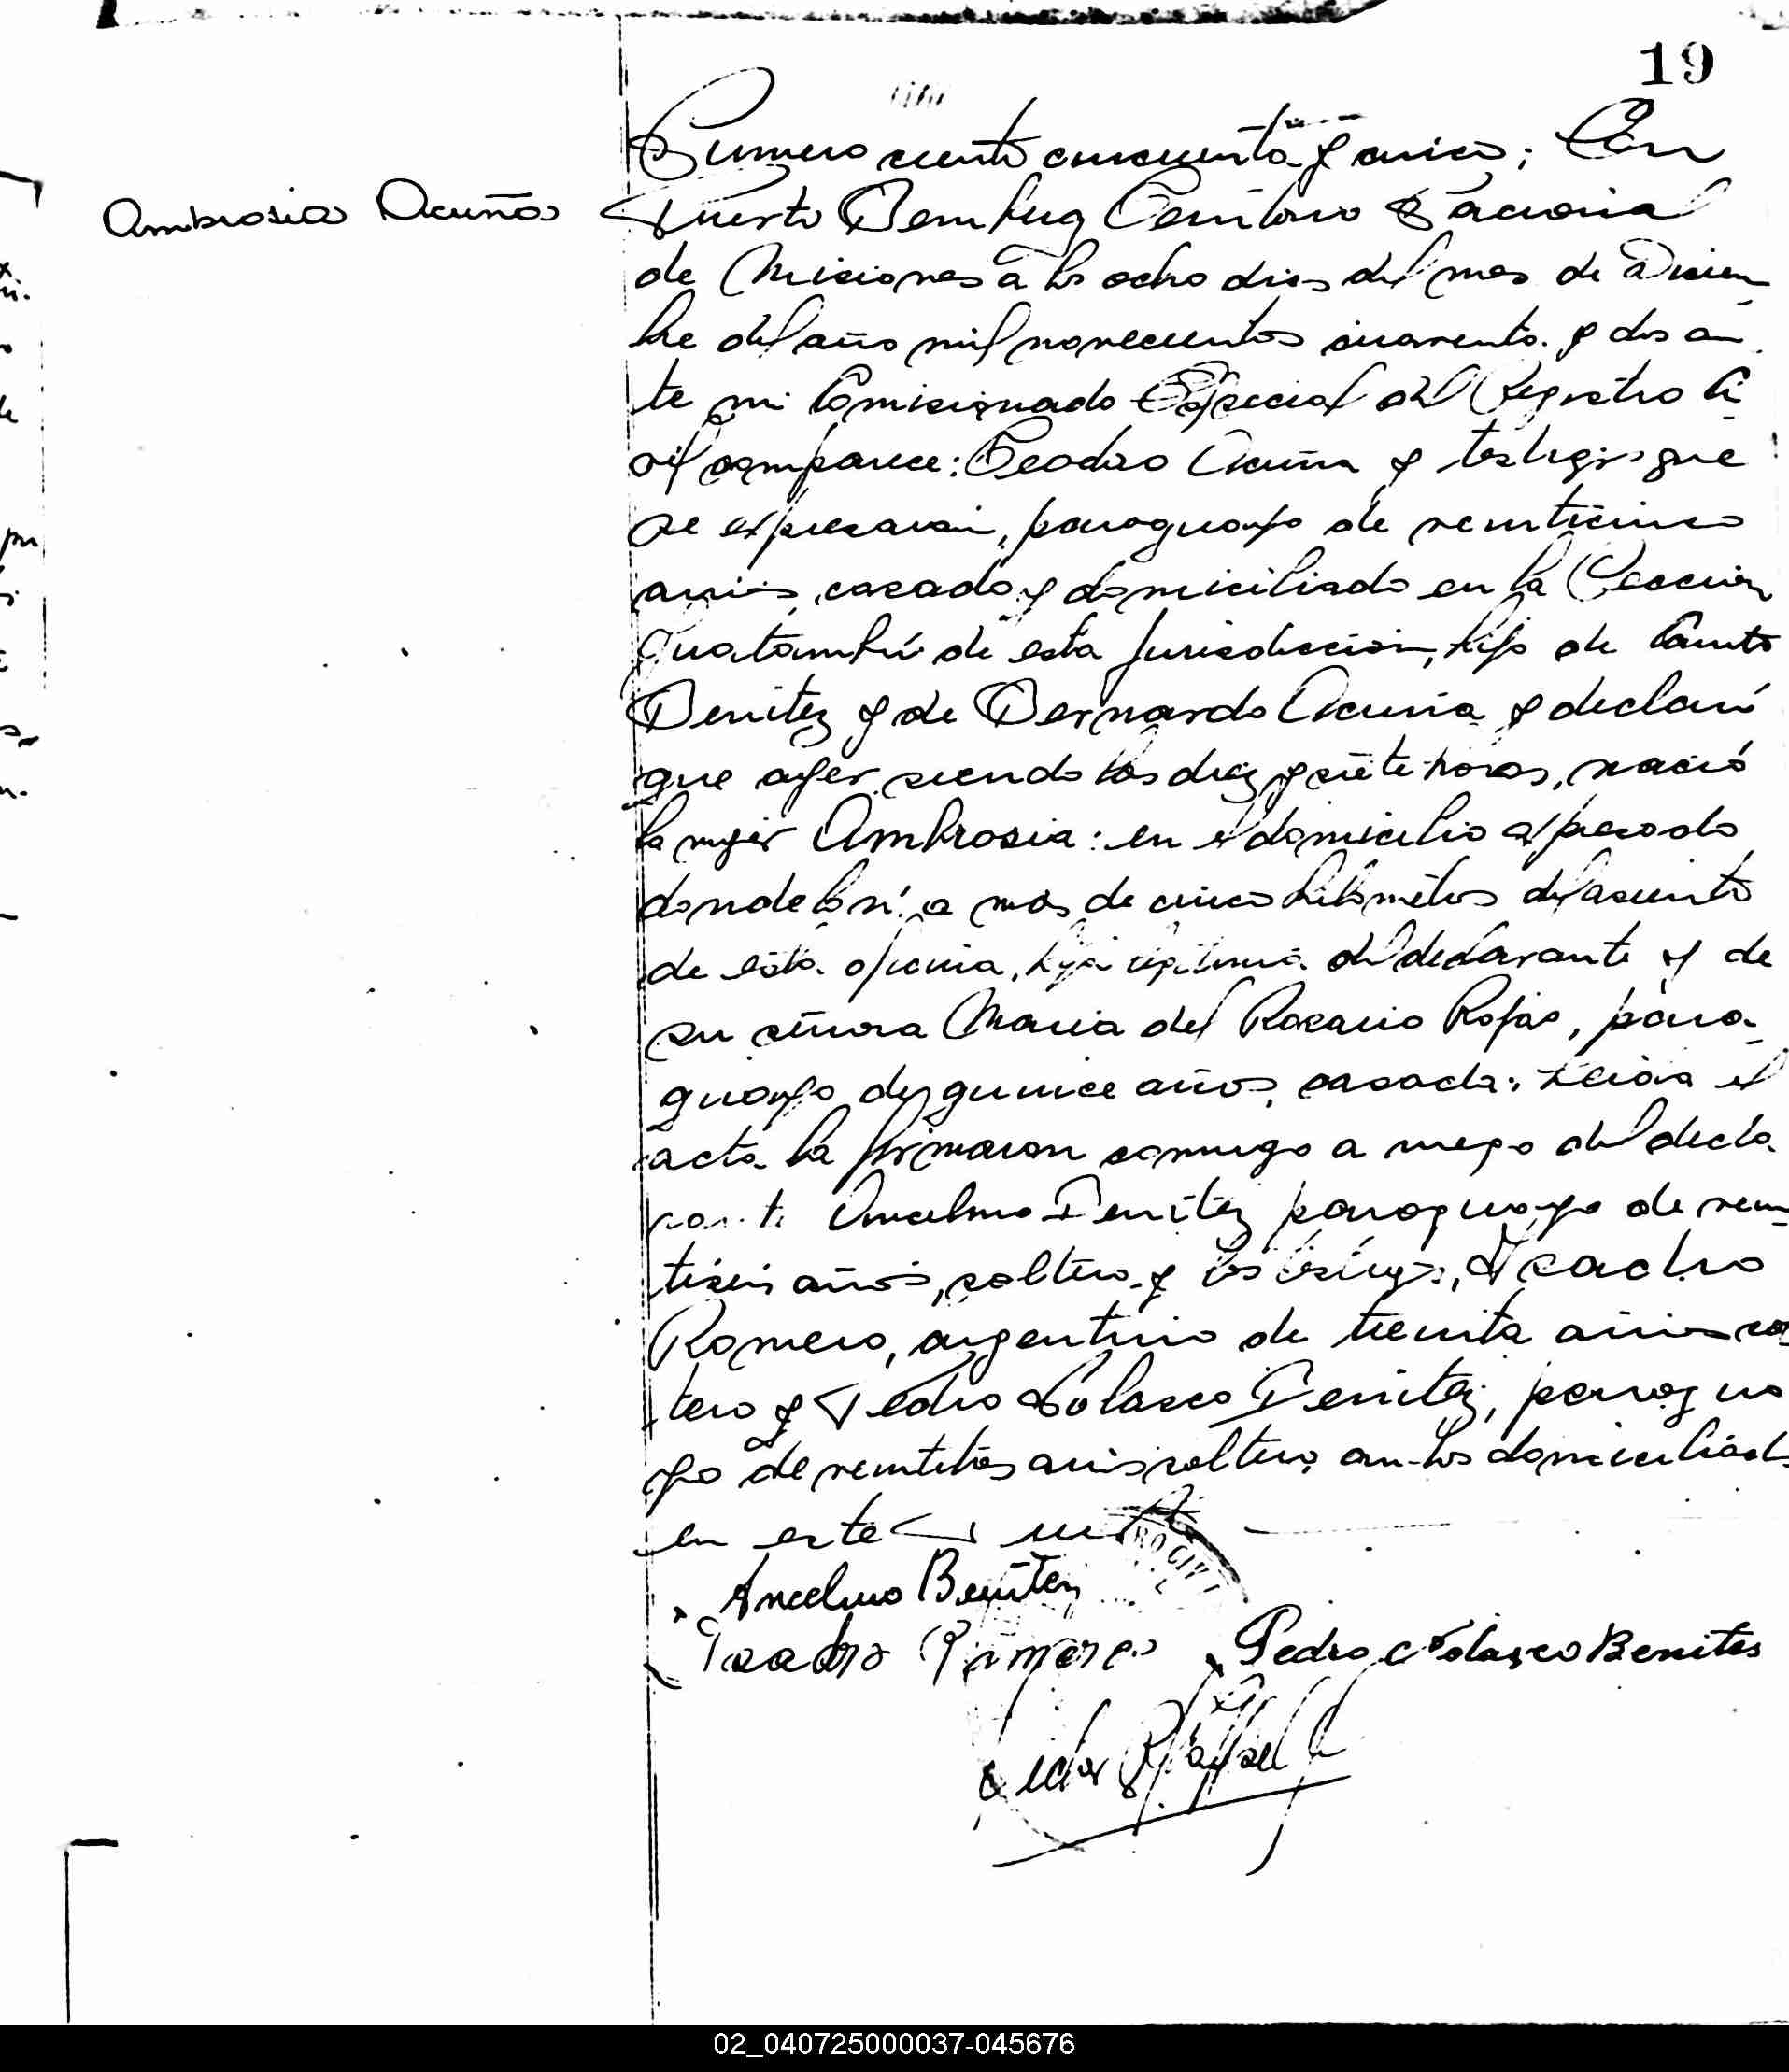 19
Ambrosia Acuña
Numero ciento cincuenta y cinco; En
Puerto Bemberg Territorio Nacional
de Misiones a los ocho dias del mes de Diciem
bre del año mil novecientos cuarenta y dos an
te mi Comisionado Especial del Registro Ci
vil comparece: Teodoro Acuña y testigos que
se expresaran, paraguayo de veinticinco
años, casado y domiciliado en la Seccion
Guatambú de esta jurisdiccion, hijo de
Benitez y de Bernardo Acuña y declaró
que ayer siendo las diez y siete horas, nació
la mujer Ambrosia: en el domicilio expresado
a mas de cinco kilometros del asiento
de esta oficina, hija legitima del declarante y de
su señora Maria del Rosario Rojas, para-
guaya de quince años, casada; Leida el
acta la firmaron conmigo a ruego del decla
rante Ancelmo Benitez paraguayo de vein-
tiseis años, soltero y los testigos, Isadro
Romero, argentino de treinta años sol
tero y Pedro Nolasco Benitez, paragua
yo de veintitres años soltero, ambos domiciliados
en este Puerto
Ancelmo Benitez
Isadro Romero Pedro Nolasco Benites
RO CIVI
02_040725000037-045676